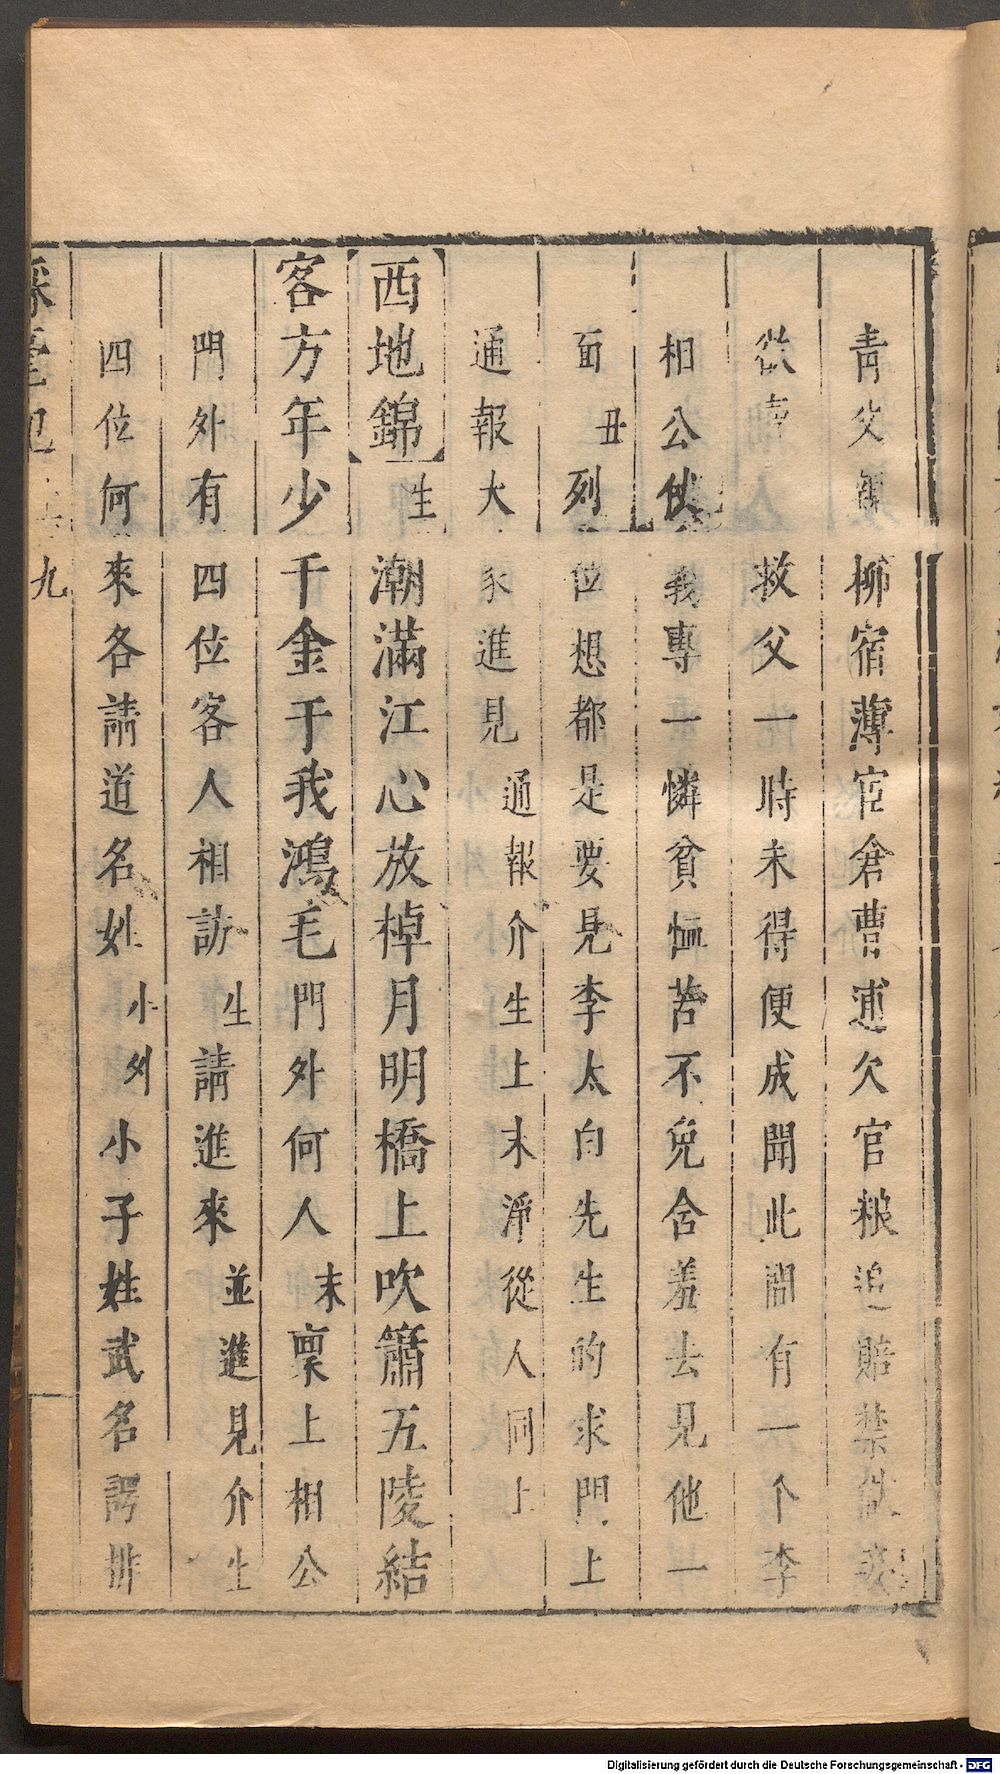 青父 柳宿薄宦倉曹逋欠官粮追賠禁獄
欲賣 救父一時未得便成聞此間有一个李
相公伏我專一憐貧恤苦不免含羞去見他一
面丑列位想都是要見李太白先生的求門上
通報大家進見通報介生上末淨從人同上
西地錦生潮滿江心放棹月明橋上吹簫五陵結
客方年少千金于我鴻毛門外何人末稟上相公
門外有四位客人相訪生請進來並進見介生
四位何來各請道名姓小外小子姓武名諤排
九
Digitalisierung gefördert durch die Deutsche Forschungsgemeinschaft - DFG